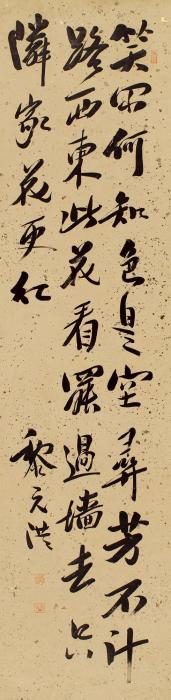 笑問何知色是空尋芳不計
路西東此花看罷過墻去只
隣家花更紅
黎元洪